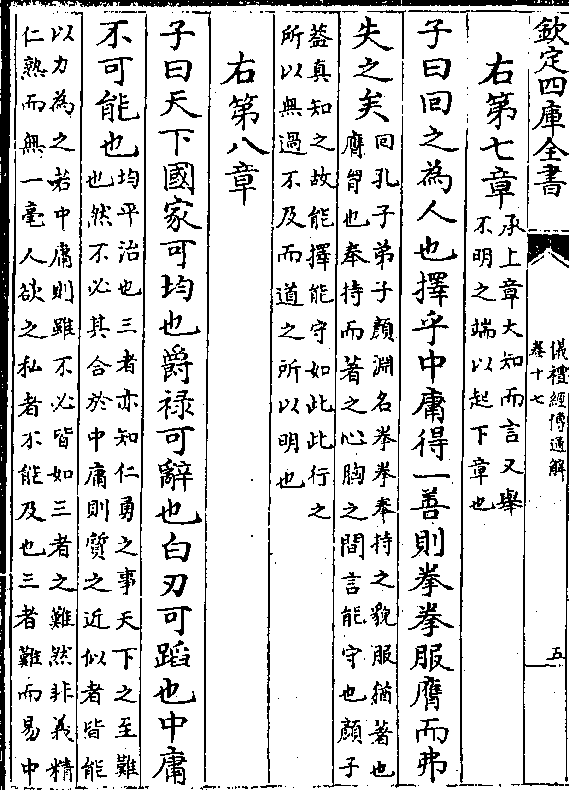 欽定四庫全書
儀禮經傳通解
卷十七
五
右第七章
承上章大知而言又舉
不明之端以起下章也
子曰回之為人也擇乎中庸得一善則拳拳服膺而弗
失之矣
回孔子弟子顏淵名拳拳奉持之貌服猶著也
膺胷也奉持而著之心胸之間言能守也顏子
葢真知之故能擇能守如此此行之
所以無過不及而道之所以明也
右第八章
子曰天下國家可均也爵禄可辭也白刃可蹈也中庸
不可能也
均平治也三者亦知仁勇之事天下之至難
也然不必其合於中庸則質之近似者皆能
以力為之若中庸則雖不必皆如三者之難然非義精
仁熟而無一毫人欲之私者不能及也三者難而易中